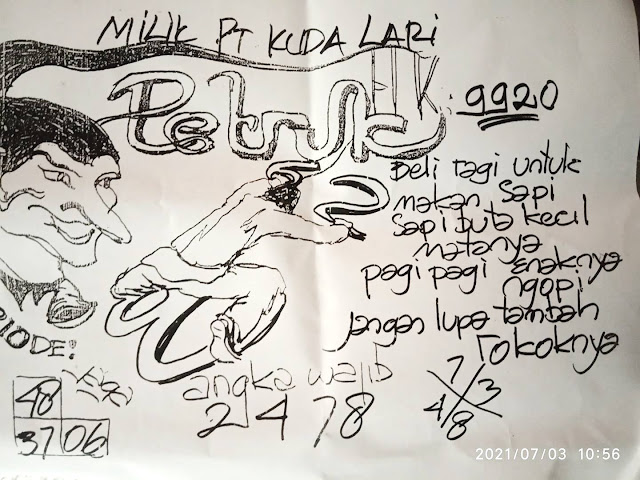 MILIK PT KUDA LARI
Petruk
HK. 9920
Beli ragi untuk
makan sapi
sapi buta kecil
matanya
pagi pagi enaknya
ngopi
jangan lupa tambah
rokoknya
IODE:
angka wajib
2 4 7 8
48
37 06
7
3
4
8
2021/07/03 10:56